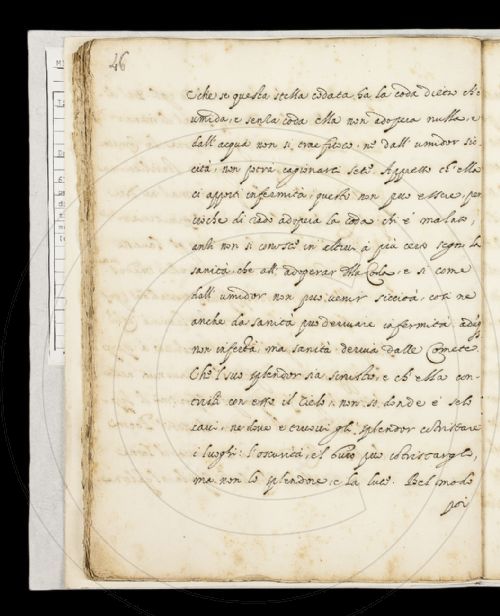 46
che se questa stella codata ha la coda dietro ch'è
umida, e senza coda ella non adopera nulla, e
dall'acqua non si trae fuoco, nè dall'umidor sic-
cità, non potrà cagionare sete. Appresso ch'ella
ci apporti infermità, questo non può essere, per
ciochè di rado adopera la coda chi è malato,
anzi non si conosce in altrui à più certo segno la
sanità, che all'adoperar della Coda, e si come
dall'umidor non può venir siccità, così nè
anche da sanità può derivare infermità
non infermità, ma sanità deriva dalle Comete.
Che'l suo splendor sia sinistro, e ch'ella con-
tristi con esso il Cielo, non so donde e' sel
cavi, nè dove e' truovi gli splendor contristare
i luoghi: l'oscurità, e'l buio può contristargli,
ma non lo splendore, e la luce. Bel modo
poi